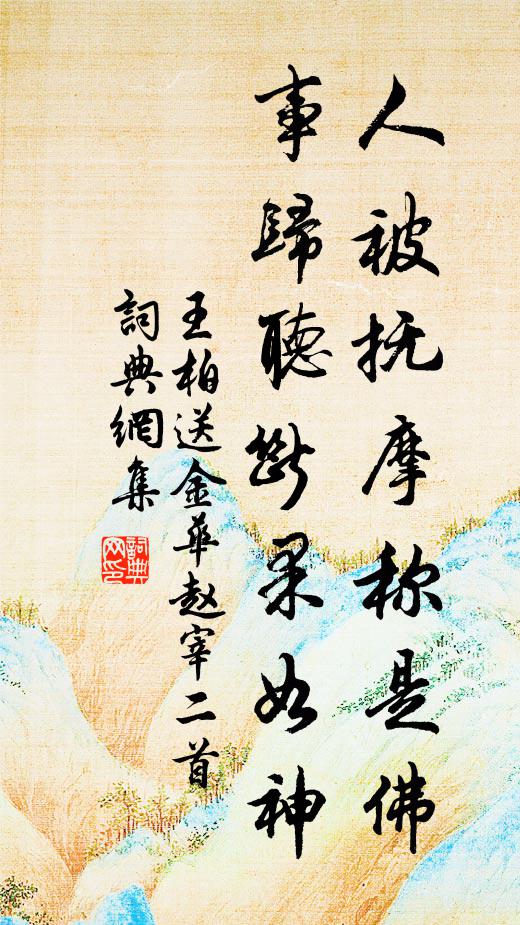 人被抚摩称是佛
事歸聽斷果如神
王柏送金華赵宰二首
詞典網集
詞典网印